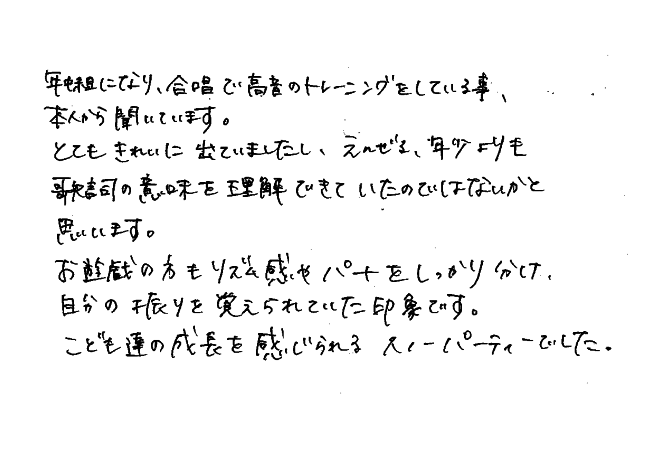 年中組になり、合唱で高音のトレーニングをしている事、
本人から聞いています。
とてもきれいに出ていましたし、年少よりも
歌詞の意味を理解できていたのではないかと
思います。
お遊戯の方もリズム感やパートをしっかり分け、
自分の振りを覚えられていた印象です。
こども達の成長を感じられるスノーパーティーでした。